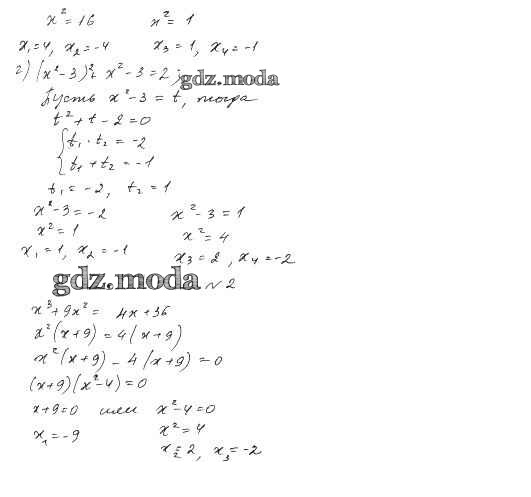 x² = 16 x² = 1
x₁ = 4, x₂ = -4 x₃ = 1, x₄ = -1
2) (x² - 3)² + x² - 3 = 2;
gdz.moda
Пусть x² - 3 = t, тогда
t² + t - 2 = 0
{ t₁ · t₂ = -2
{ t₁ + t₂ = -1
t₁ = -2, t₂ = 1
x² - 3 = -2 x² - 3 = 1
x² = 1 x² = 4
x₁ = 1, x₂ = -1 x₃ = 2, x₄ = -2
gdz.moda № 2
x³ + 9x² = 4x + 36
x²(x + 9) = 4(x + 9)
x²(x + 9) - 4(x + 9) = 0
(x + 9)(x² - 4) = 0
x + 9 = 0 или x² - 4 = 0
x₁ = -9 x² = 4
x₂ = 2, x₃ = -2